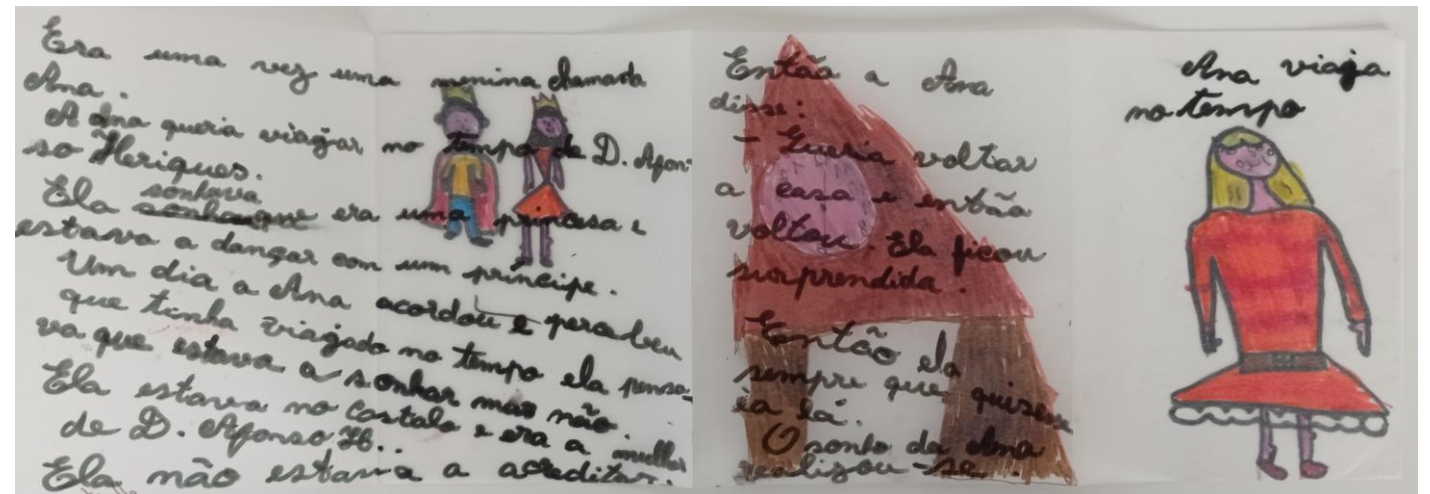 Era uma vez uma menina chamada
Ana.
A Ana queria viajar no tempo de D. Afon-
so Heriques.
sonhava
Ela era uma princesa e
estava a dançar com um príncipe.
Um dia a Ana acordou e percebeu
que tinha viajado no tempo ela pensa-
va que estava a sonhar mas não.
Ela estava no castelo e era a mulher
de D. Afonso H..
Ela não estava a acreditar.
Então a Ana
disse:
- Queria voltar
a casa e então
voltou. Ela ficou
surprendida.
Então ela
sempre que quisesse
ia lá.
O sonho da Ana
realizou-se.
Ana viaja
no tempo